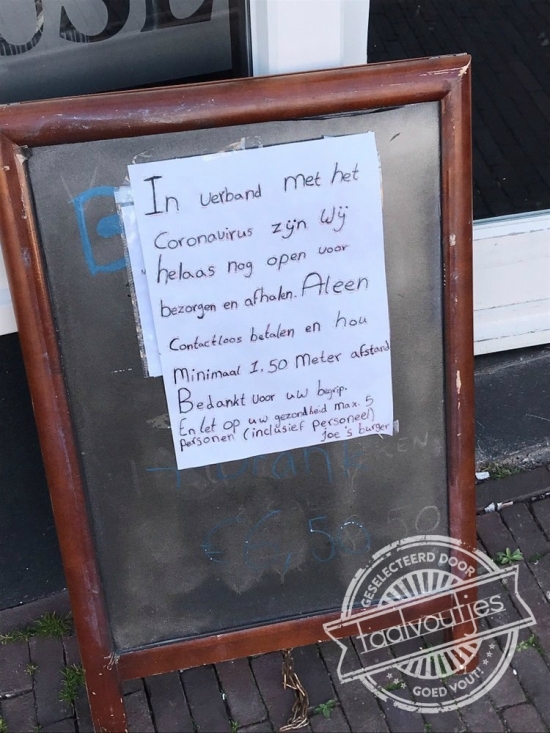 In verband met het
Coronavirus zijn Wij
helaas nog open voor
bezorgen en afhalen. Aleen
Contactloos betalen en hou
Minimaal 1.50 Meter afstand
Bedankt voor uw begrip.
En let op uw gezondheid max. 5
personen (inclusief personeel)
Joe's burger
+ Drank
€6,50
GESELECTEERD DOOR
taalvoutjes
GOED VOUT!